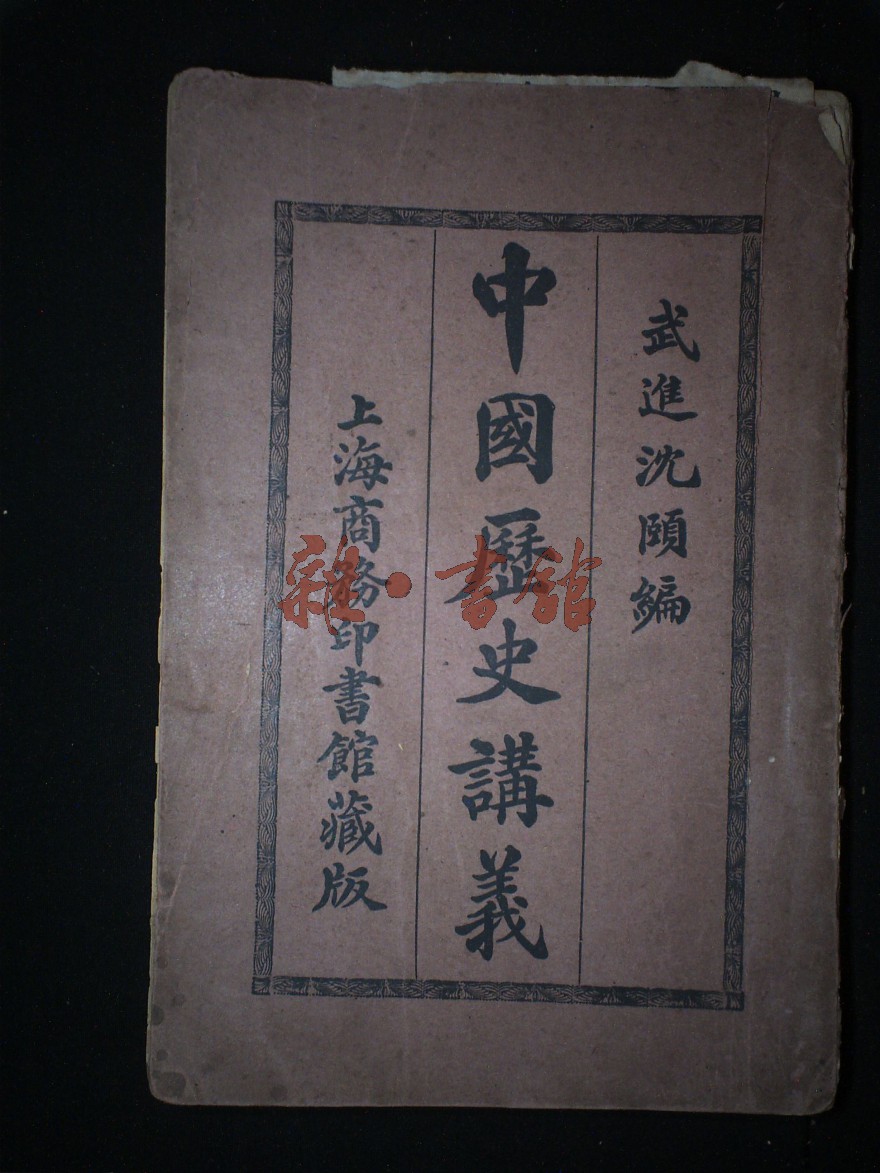 武進沈頤編
中國歷史講義
上海商務印書館藏版
雜·書館